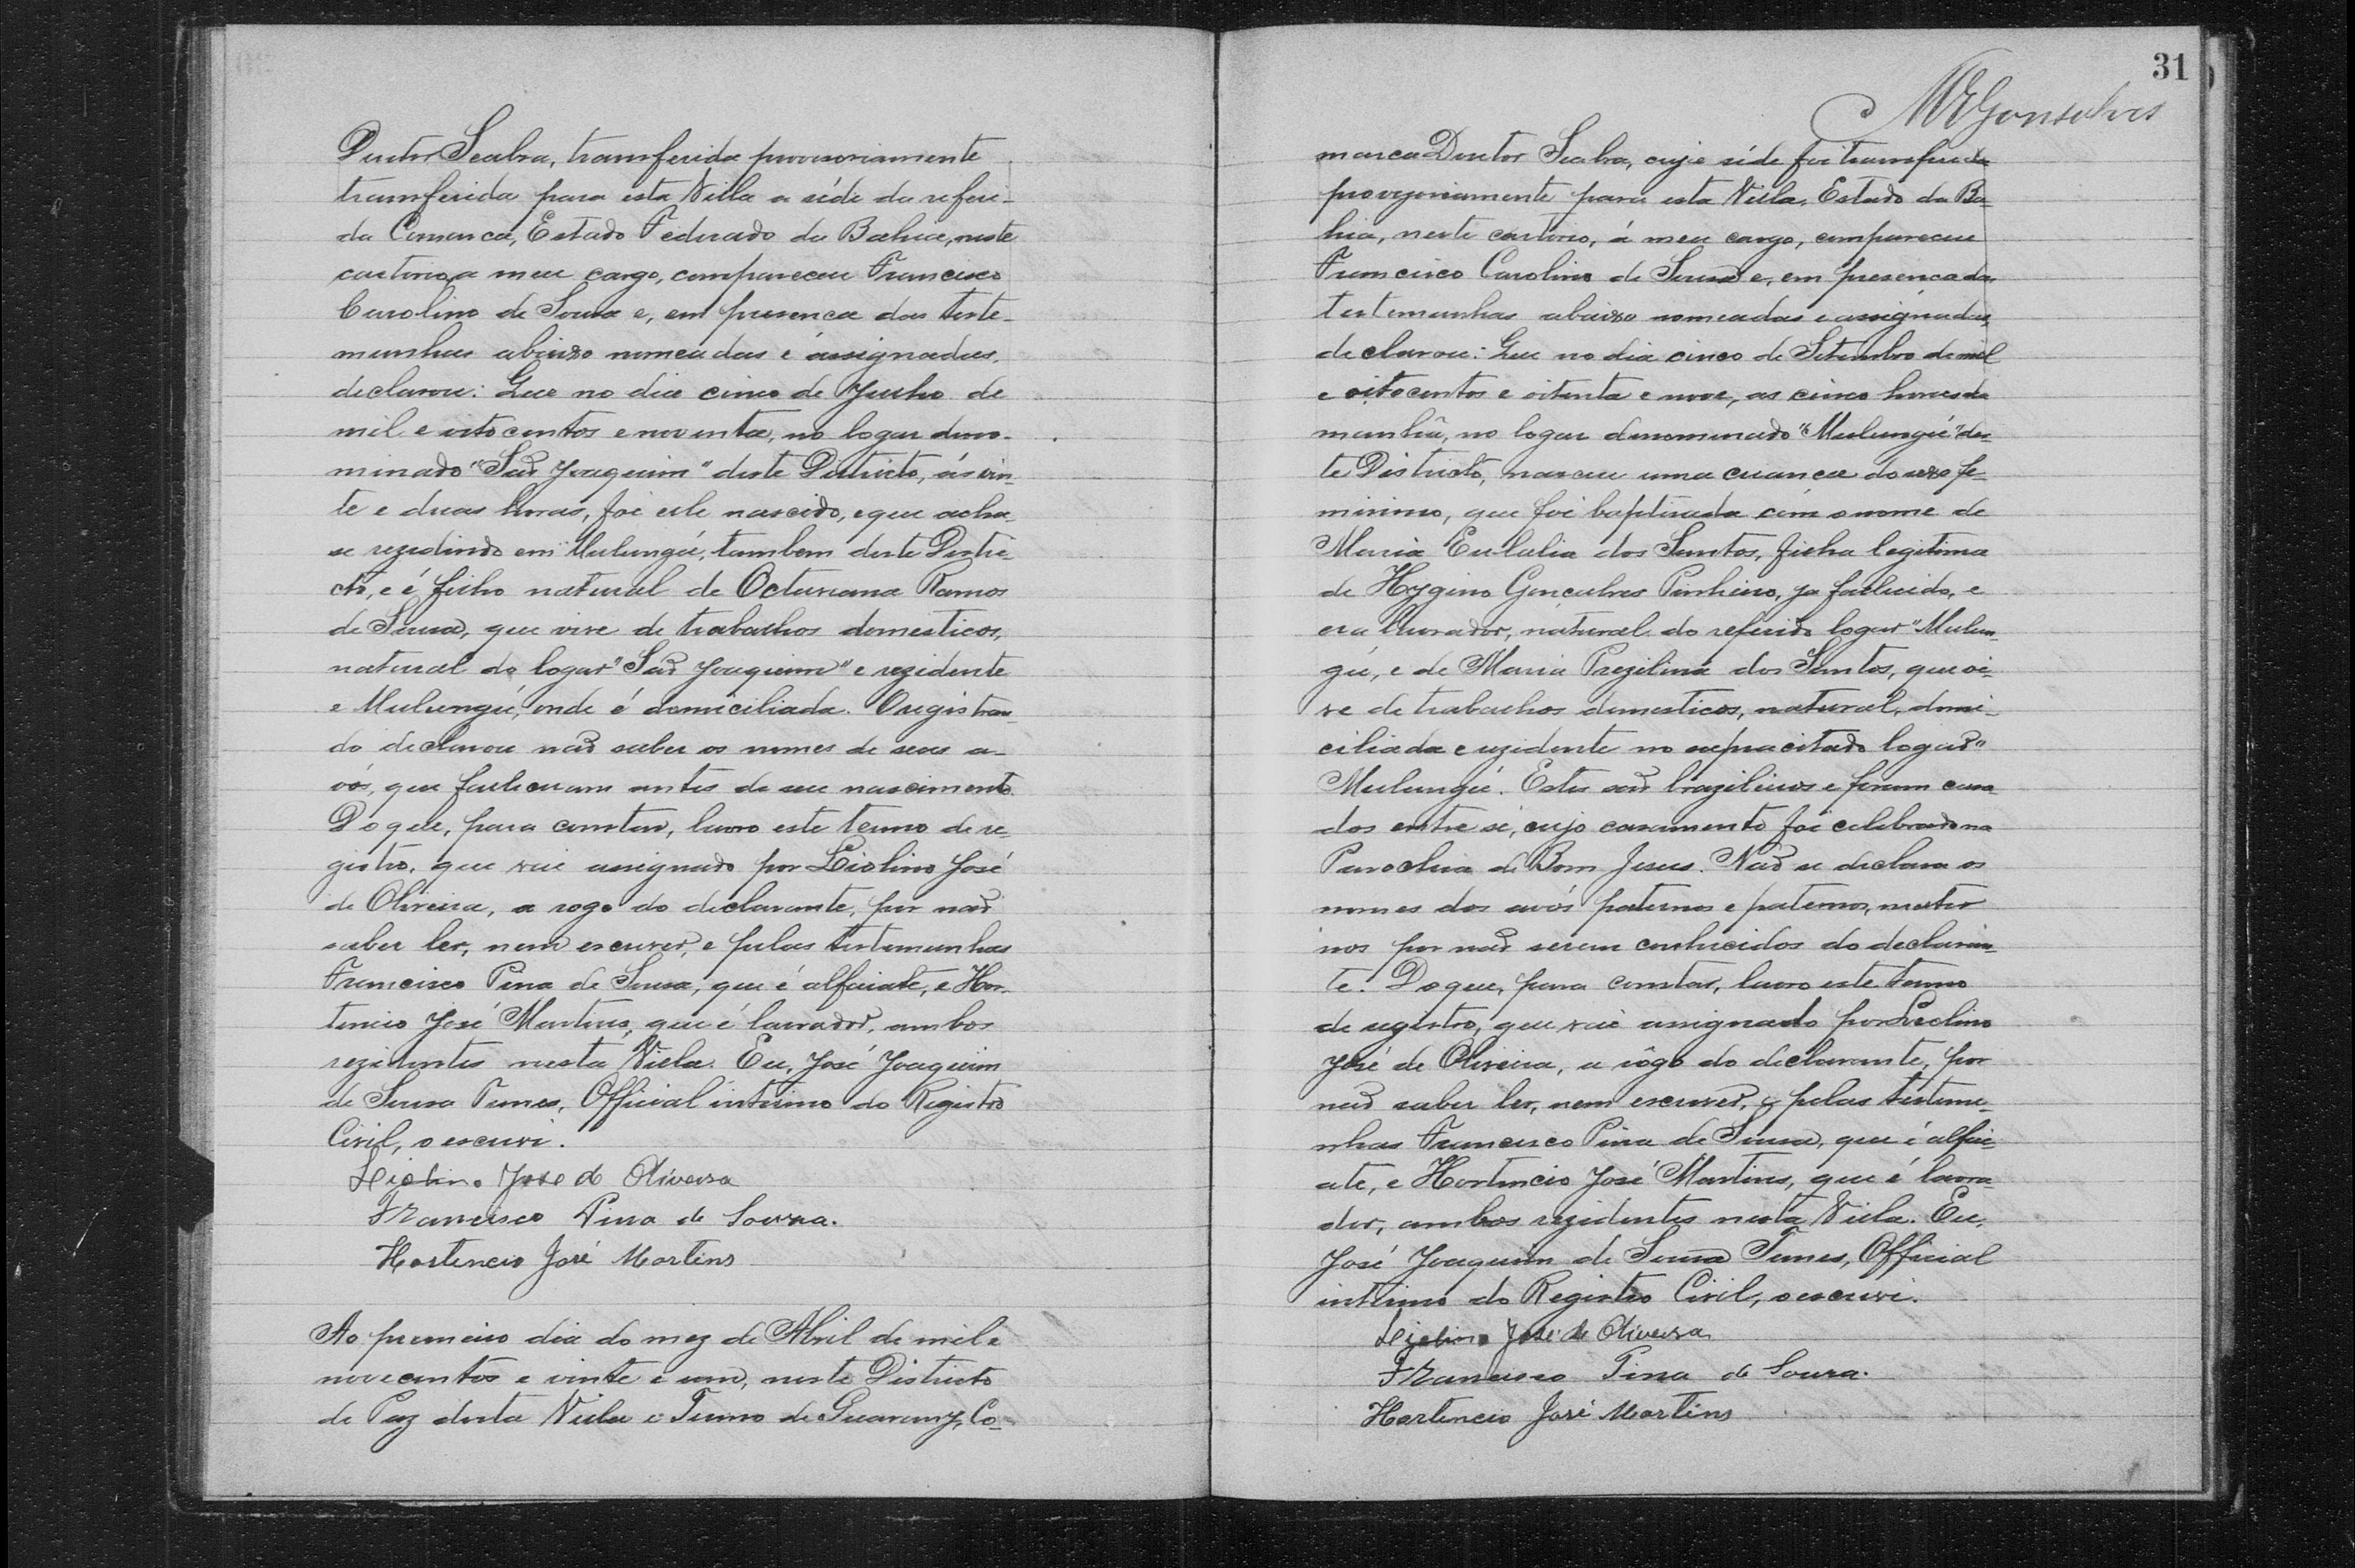 Doutor Seabra, transferida provisoriamente
transferida para esta Villa a séde da referi-
da Comarca, Estado Federado da Bahia, neste
cartorio a meu cargo, compareceu Francisco
Carolino de Sousa e, em presença das teste-
munhas abaixo nomeadas e assignadas,
declarou: Que no dia cinco de Junho de
mil e oito centos e noventa, no logar deno-
minado "São Joaquim" deste Districto, ás vin-
te e duas horas, foi elle nascido, e que acha-
se rezidindo em "Mulungú", tambem deste Distri-
cto, e é filho natural de Octaviana Ramos
de Sousa, que vive de trabalhos domesticos,
natural do logar "São Joaquim" e rezidente
e Mulungú, onde é domiciliada. O registran-
do declarou não saber os nomes de seus a-
vós, que falleceram antes de seu nascimento.
Do que, para constar, lavro este termo de re-
gistro, que vai assignado por Liolino José
de Oliveira, a rogo do declarante, por não
saber ler, nem escrever, e pelas testemunhas
Francisco Pina de Sousa, que é alfaiate, e Hor-
tencio José Martins, que é lavrador, ambos
rezidentes nesta Villa. Eu, José Joaquim
de Sousa Tunes, Official interino do Registro
Civil, o escrevi.
Liolino José de Oliveira
Francisco Pina de Souza.
Hortencio José Martins
Ao premeiro dia do mez de Abril de mil e
novecentos e vinte e um, neste Districto
de Paz desta Villa e Termo de Guarany, Co-
31
MRGonsalves
marca Doutor Seabra, cuja séde foi transferida
provizoriamente para esta Villa, Estado da Ba-
hia, neste cartorio, á meu cargo, compareceu
Francisco Carolino de Sousa e, em presença das
testemunhas abaixo nomeadas e assignadas,
declarou: Que no dia cinco de Setembro de mil
e oitocentos e oitenta e nove, as cinco horas da
manhã, no logar denominado "Mulungú" des-
te Districto, nasceu uma creança do sexo fe-
minino, que foi baptisada com o nome de
Maria Eulalia dos Santos, filha legitima
de Hygino Gonçalves Pinheiro, ja fallecido, e
era lavrador, natural do referido logar "Mulun-
gú, e de Maria Prezilina dos Santos, que vi-
ve de trabalhos domesticos, natural, domi-
ciliada e rezidente no supracitado logar"
Mulungú. Estes são brazileiros e foram casa-
dos entre si, cujo casamento foi celebrado na
Parochia de Bom Jesus. Não se declara os
nomes dos avós paternos e paternos, mater
nos por não serem conhecidos do declaran-
te. Do que, para constar, lavro este termo
de registro, que vai assignado por Liolino
José de Oliveira, a rôgo do declarante, por
não saber ler, nem escrever, e pelas testemu-
nhas Francisco Pina de Sousa, que é alfai-
ate, e Hortencio José Martins, que é lavra-
dor, ambos rezidentes nesta Villa. Eu,
José Joaquim de Sousa Tunes, Official
interino do Registro Civil, o escrevi.
Liolino José de Oliveira
Francisco Pina de Souza.
Hortencio José Martins